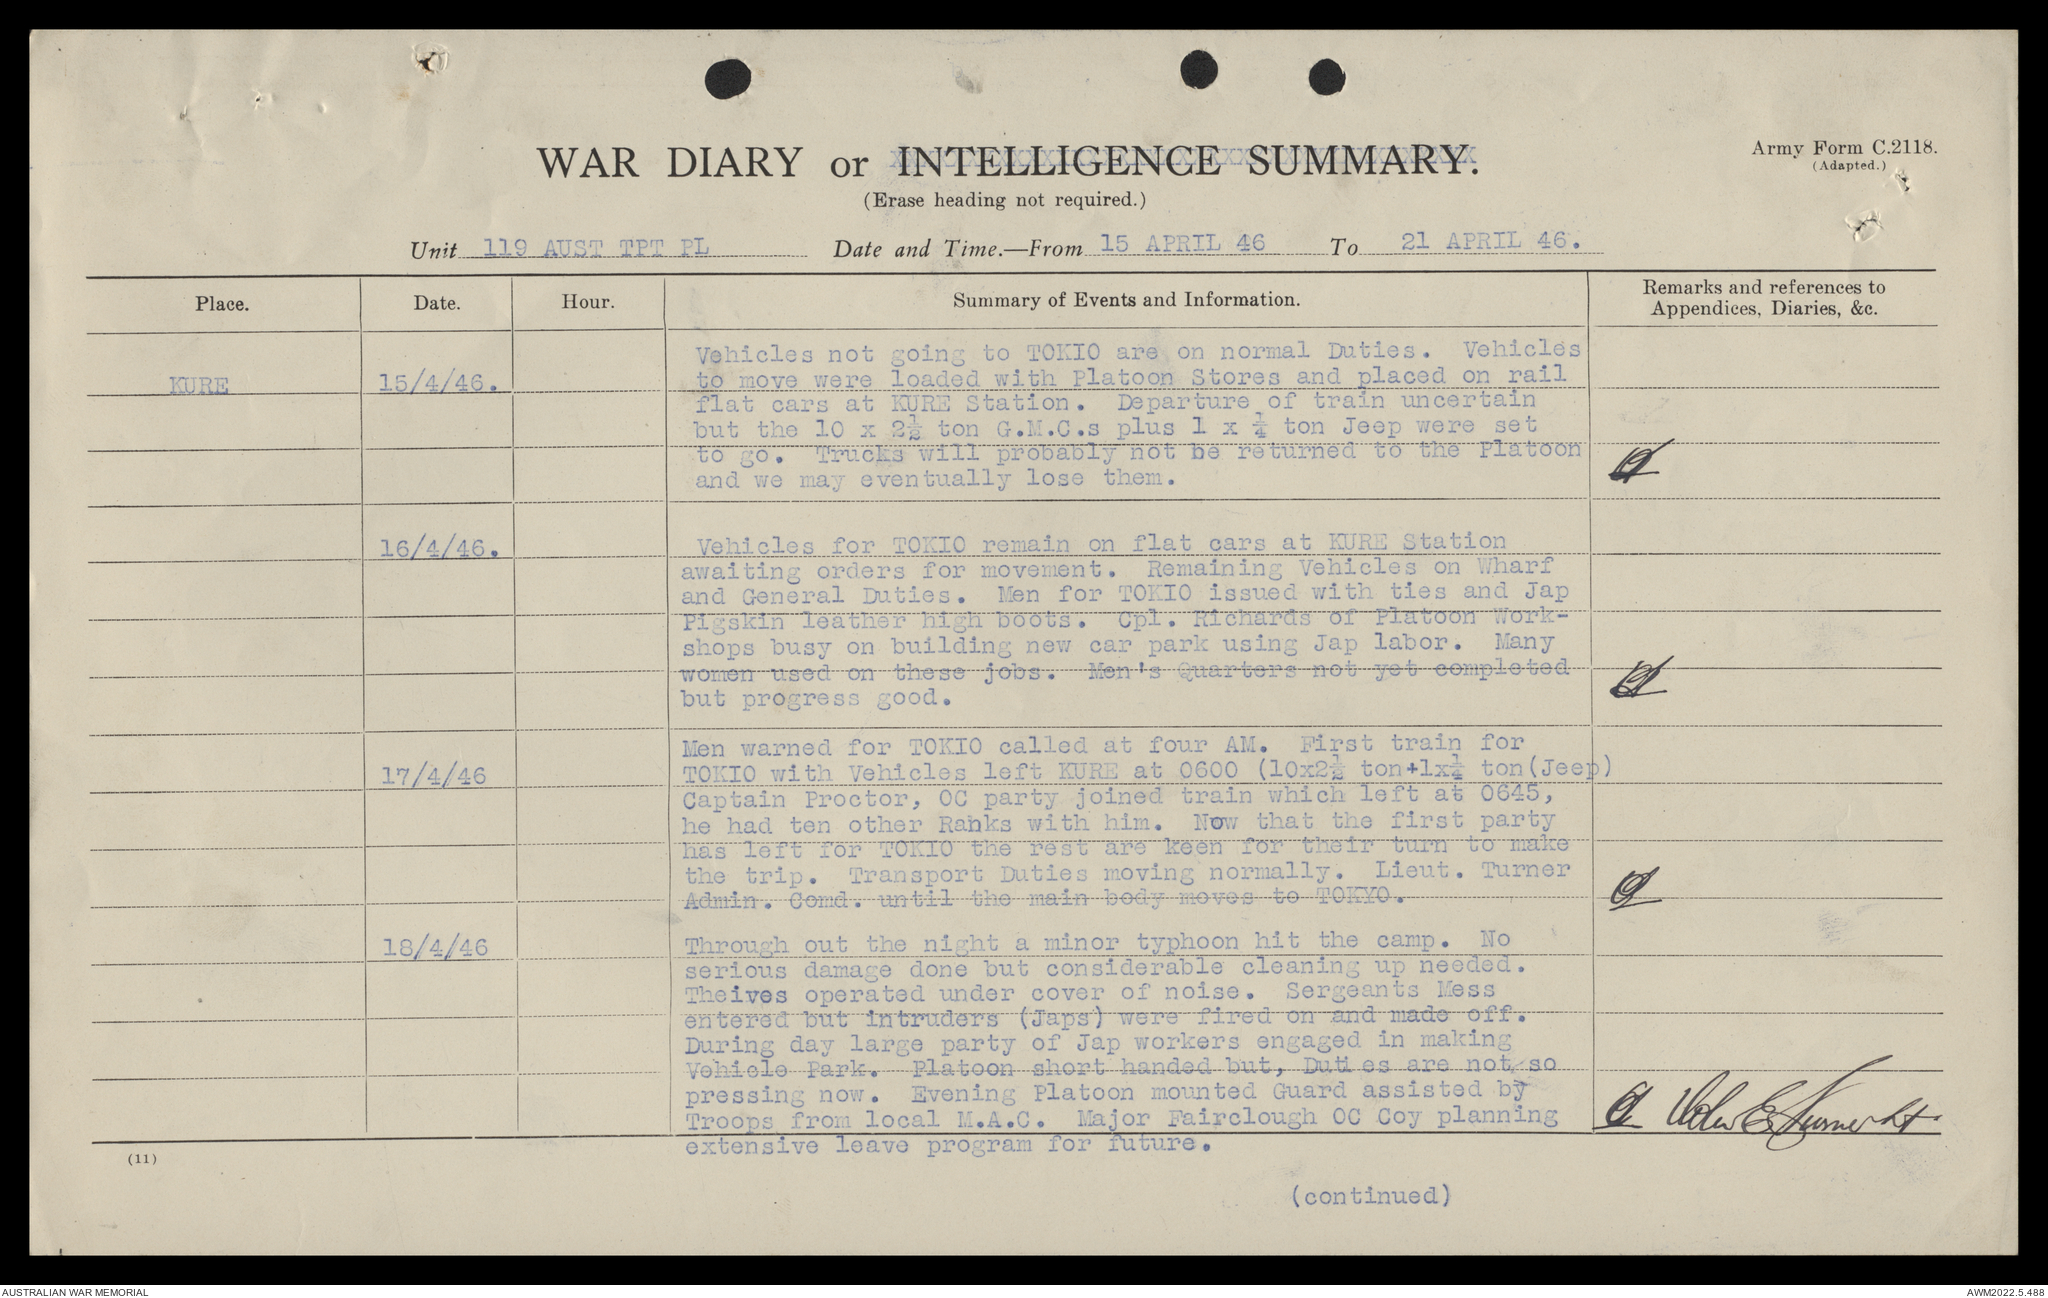 WAR DIARY or INTELLIGENCE SUMMARY.
Army Form C.2118.
(Adapted.)
(Erase heading not required.)
Unit 119 AUST TPT PL Date and Time.—From 15 APRIL 46 To 21 APRIL 46.
Place. Date. Hour. Summary of Events and Information. Remarks and references to
Appendices, Diaries, &c.
KURE 15/4/46.
Vehicles not going to TOKIO are on normal Duties. Vehicles
to move were loaded with Platoon Stores and placed on rail
flat cars at KURE Station. Departure of train uncertain
but the 10 x 2½ ton G.M.C.s plus 1 x ¼ ton Jeep were set
to go. Trucks will probably not be returned to the Platoon
and we may eventually lose them.
16/4/46.
Vehicles for TOKIO remain on flat cars at KURE Station
awaiting orders for movement. Remaining Vehicles on Wharf
and General Duties. Men for TOKIO issued with ties and Jap
Pigskin leather high boots. Cpl. Richards of Platoon Work-
shops busy on building new car park using Jap labor. Many
women used on these jobs. Men's Quarters not yet completed
but progress good.
17/4/46
Men warned for TOKIO called at four AM. First train for
TOKIO with Vehicles left KURE at 0600 (10x2½ ton+1x¼ ton(Jeep)
Captain Proctor, OC party joined train which left at 0645,
he had ten other Ranks with him. Now that the first party
has left for TOKIO the rest are keen for their turn to make
the trip. Transport Duties moving normally. Lieut. Turner
Admin. Comd. until the main body moves to TOKYO.
18/4/46
Through out the night a minor typhoon hit the camp. No
serious damage done but considerable cleaning up needed.
Theives operated under cover of noise. Sergeants Mess
entered but intruders (Japs) were fired on and made off.
During day large party of Jap workers engaged in making
Vehicle Park. Platoon short handed but, Duties are not so
pressing now. Evening Platoon mounted Guard assisted by
Troops from local M.A.C. Major Fairclough OC Coy planning
extensive leave program for future.
(11)
(continued)
AUSTRALIAN WAR MEMORIAL
AWM2022.5.488